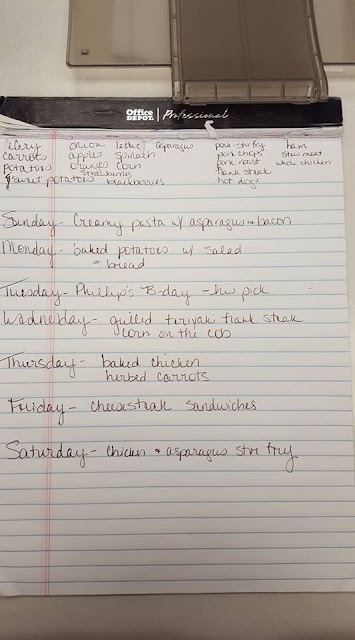 Office DEPOT. Professional
celery onion lettuce asparagus pork stir fry ham
carrots apples spinach pork chops stew meat
potatoes oranges corn pork roast whole chicken
sweet potatoes strawberries blackberries flank steak
hot dogs
Sunday - Creamy pasta w/ asparagus + bacon
Monday - baked potatoes w/ salad
+ bread
Tuesday - Phillip's B-day - his pick
Wednesday - grilled teriyaki flank steak
corn on the cob
Thursday - baked chicken
herbed carrots
Friday - cheesesteak sandwiches
Saturday - chicken + asparagus stir fry